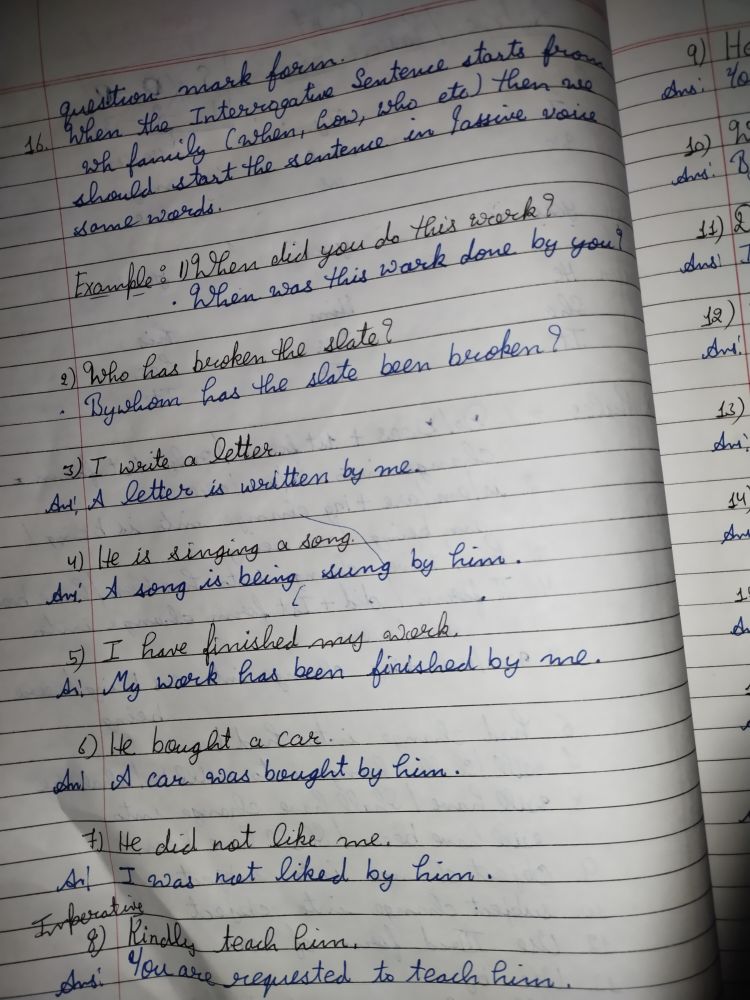 question mark form.
16. When the Interrogative Sentence starts from
wh family (when, how, who etc) then we
should start the sentence in Passive voice
same words.
Example: 1) When did you do this work?
. When was this work done by you?
2) Who has broken the slate?
. Bywhom has the slate been broken?
3) I write a letter.
Ans: A letter is written by me.
4) He is singing a song.
Ans: A song is being sung by him.
5) I have finished my work.
An: My work has been finished by me.
6) He bought a car.
Ans A car was bought by him.
7) He did not like me.
An I was not liked by him.
Imperative
8) Kindly teach him.
Ans: You are requested to teach him.
9)
Ans:
10)
Ans:
11)
Ans:
12)
Ans:
13)
Ans:
14)
An